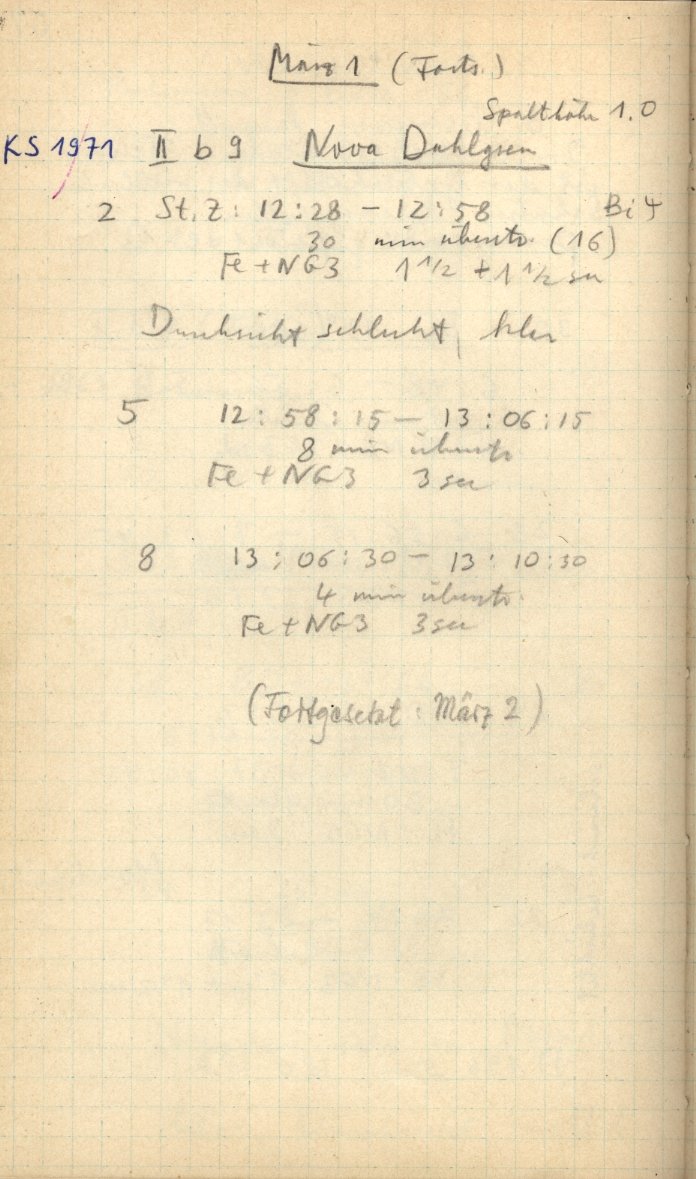 März 1 (Forts.)
Spalthöhe 1.0
KS 1971 II b 9 Nova Dahlgren
2 St.Z: 12:28 - 12:58 Bi 4
30 min (16)
Fe + NG3 1 1/2 + 1 1/2 sec
Durchsicht schlecht, klar
5 12:58:15 - 13:06:15
8 min
Fe + NG3 3 sec
8 13:06:30 - 13:10:30
4 min
Fe + NG3 3 sec
(Fortgesetzt: März 2)